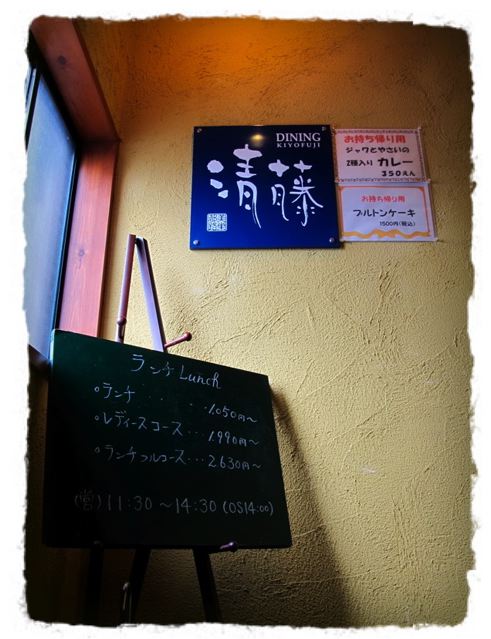 DINING
KIYOFUJI
清藤
お持ち帰り用
ジャワとやさいの
2種入り カレー
350えん
お持ち帰り用
ブルトンケーキ
1500円(税込)
ランチ Lunch
○ランチ ・・・・・・1.050円~
○レディースコース・・・1.990円~
○ランチフルコース・・・2.630円~
(営) 11:30 ~14:30 (OS14:00)